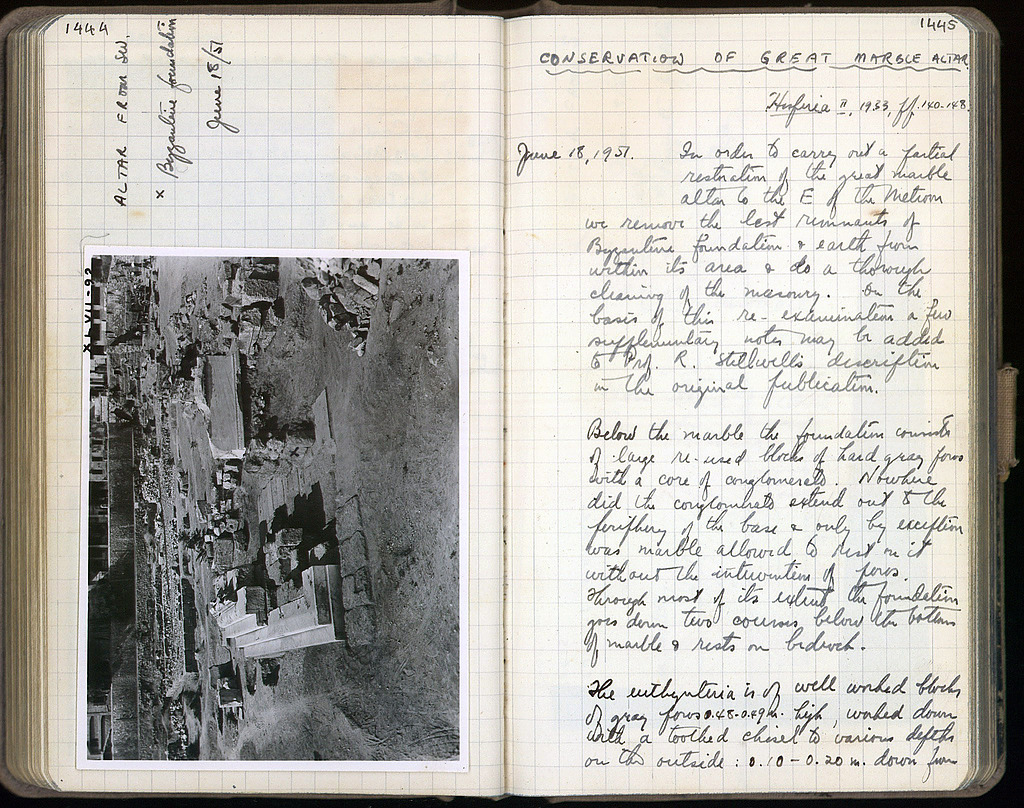 1444
ALTAR FROM SW.
x Byzantine foundation
June 18/51
XLVII-92
x
1445
CONSERVATION OF GREAT MARBLE ALTAR
Hesperia II, 1933, pp. 140-148.
June 18, 1951. In order to carry out a partial
restoration of the great marble
altar to the E of the Metroon
we remove the last remnants of
Byzantine foundation & earth from
within its area & do a thorough
cleaning of the masonry. On the
basis of this re-examination a few
supplementary notes may be added
to Prof. R. Stillwell's description
in the original publication.
Below the marble the foundation consists
of large re-used blocks of hard gray poros
with a core of conglomerate. Nowhere
did the conglomerate extend out to the
periphery of the base & only by exception
was marble allowed to rest on it
without the intervention of poros.
Through most of its extent the foundation
goes down two courses below the bottom
of marble & rests on bedrock.
The euthynteria is of well worked blocks
of gray poros 0.48-0.49 m. high, worked down
with a toothed chisel to various depths
on the outside: 0.10 - 0.20 m. down from